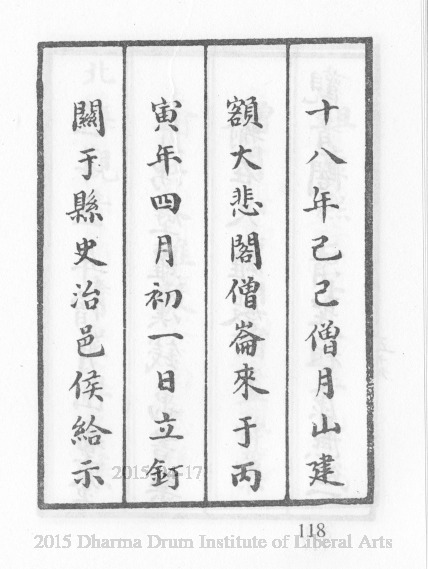 十八年己巳僧月山建
額大悲閣僧崙來于丙
寅年四月初一日立訂
關于縣史治邑侯給示
118
2015-04-17
2015 Dharma Drum Institute of Liberal Arts